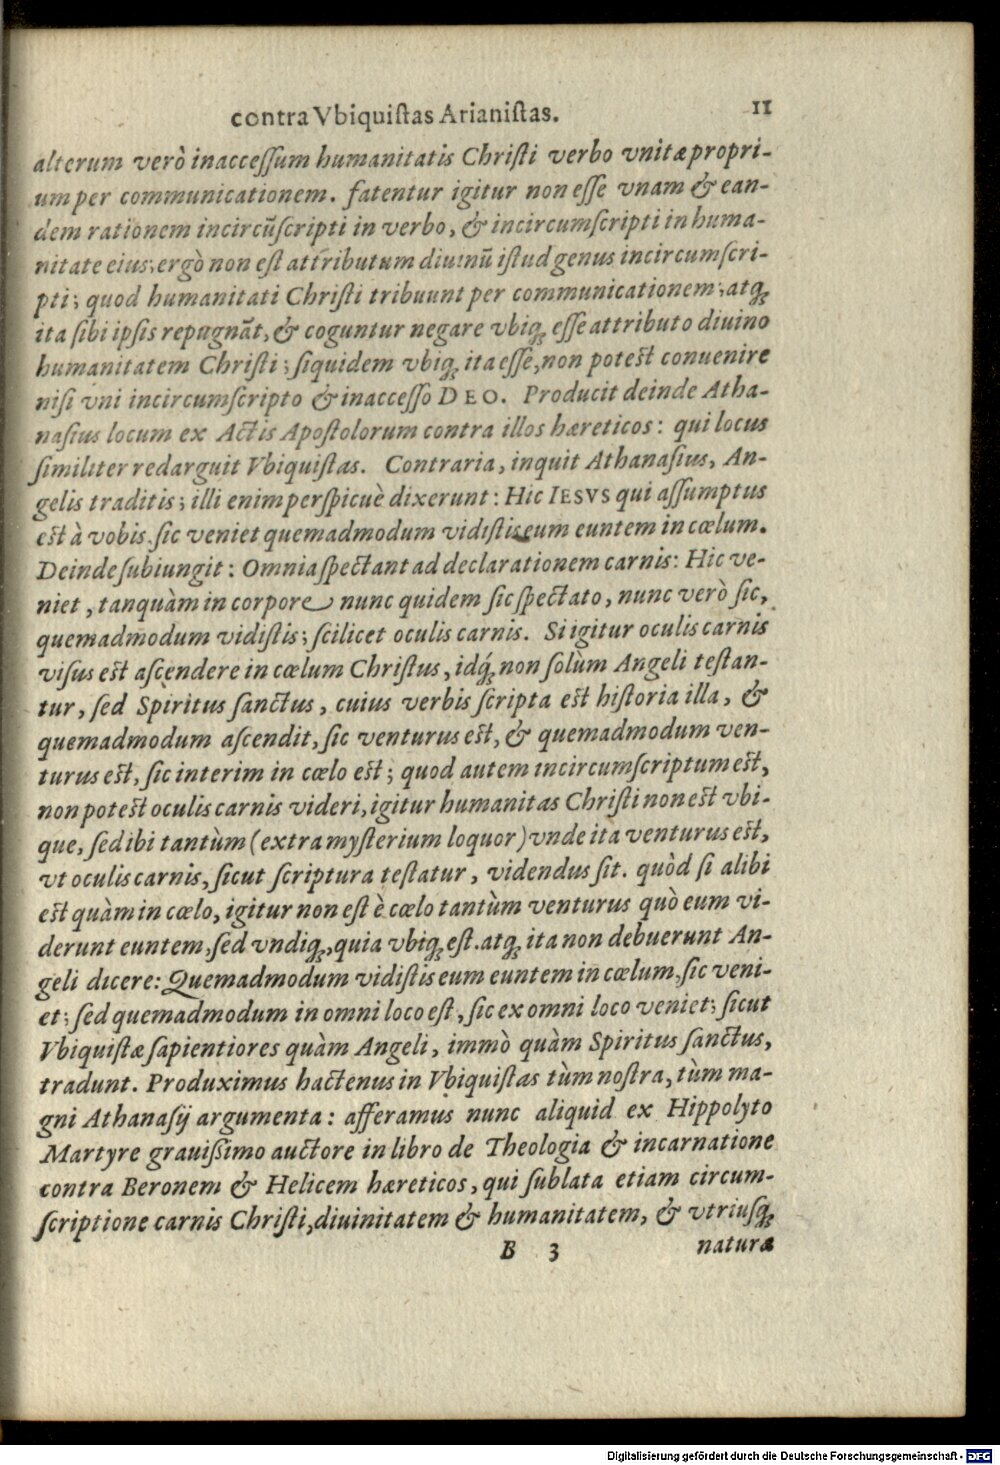 contra Vbiquiſtas Arianiſtas. 11
alterum verò inacceſſum humanitatis Chriſti verbo vnitæ propri-
um per communicationem. fatentur igitur non eſſe vnam & ean-
dem rationem incircũſcripti in verbo, & incircumſcripti in huma-
nitate eius; ergò non eſt attributum diuinũ iſtud genus incircumſcri-
pti; quod humanitati Chriſti tribuunt per communicationem; atq́;
ita ſibi ipſis repugnãt, & coguntur negare vbiq; eſſe attributo diuino
humanitatem Chriſti; ſiquidem vbiq; ita eſſe, non poteſt conuenire
niſi vni incircumſcripto & inacceſſo DEO. Producit deinde Atha-
naſius locum ex Actis Apoſtolorum contra illos hæreticos: qui locus
ſimiliter redarguit Vbiquiſtas. Contraria, inquit Athanaſius, An-
gelis traditis; illi enim perſpicuè dixerunt: Hic IESVS qui aſſumptus
eſt à vobis, ſic veniet quemadmodum vidiſtis eum euntem in cœlum.
Deinde ſubiungit: Omnia ſpectant ad declarationem carnis: Hic ve-
niet, tanquàm in corpore nunc quidem ſic ſpectato, nunc verò ſic,
quemadmodum vidiſtis; ſcilicet oculis carnis. Si igitur oculis carnis
viſus eſt aſcendere in cœlum Chriſtus, idq́; non ſolùm Angeli teſtan-
tur, ſed Spiritus ſanctus, cuius verbis ſcripta eſt hiſtoria illa, &
quemadmodum aſcendit, ſic venturus eſt, & quemadmodum ven-
turus eſt, ſic interim in cœlo eſt; quod autem incircumſcriptum eſt,
non poteſt oculis carnis videri, igitur humanitas Chriſti non eſt vbi-
que, ſed ibi tantùm (extra myſterium loquor) vnde ita venturus eſt,
vt oculis carnis, ſicut ſcriptura teſtatur, videndus ſit. quòd ſi alibi
eſt quàm in cœlo, igitur non eſt è cœlo tantùm venturus quò eum vi-
derunt euntem, ſed vndiq;, quia vbiq; eſt. atq; ita non debuerunt An-
geli dicere: Quemadmodum vidiſtis eum euntem in cœlum, ſic veni-
et; ſed quemadmodum in omni loco eſt, ſic ex omni loco veniet; ſicut
Vbiquiſtæ ſapientiores quàm Angeli, immò quàm Spiritus ſanctus,
tradunt. Produximus hactenus in Vbiquiſtas tùm noſtra, tùm ma-
gni Athanaſij argumenta: afferamus nunc aliquid ex Hippolyto
Martyre grauiſſimo auctore in libro de Theologia & incarnatione
contra Beronem & Helicem hæreticos, qui ſublata etiam circum-
ſcriptione carnis Chriſti, diuinitatem & humanitatem, & vtriuſq;
B 3 naturæ
Digitalisierung gefördert durch die Deutsche Forschungsgemeinschaft - DFG